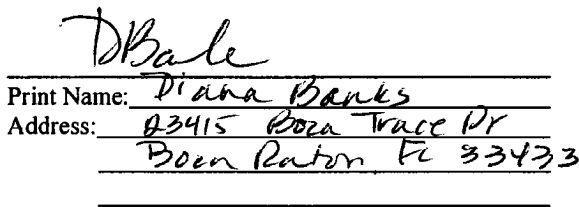 DBale
Print Name: Diana Banks
Address: 23415 Boca Trace Dr
Boca Raton FL 33433